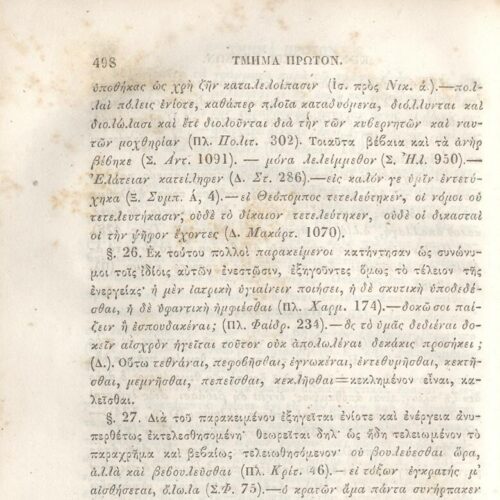 498 ΤΜΗΜΑ ΠΡΩΤΟΝ.
ὑποθήκας ὡς χρὴ ζῆν καταλελοίπασιν (Ἰσ. πρὸς Νικ. ά.).—πολ-
λαὶ πόλεις ἐνίοτε, καθάπερ πλοῖα καταδυόμενα, διόλλυνται καὶ
διολώλασι καὶ ἔτι διολοῦνται διὰ τὴν τῶν κυβερνητῶν καὶ ναυ-
τῶν μοχθηρίαν (Πλ. Πολιτ. 302). Τοιαῦτα βέβαια καὶ τὰ ἀνὴρ
βέβηκε (Σ. Ἀντ. 1091). — μόνα λελείμμεθον (Σ. Ἠλ. 950).—
Ἐλάτειαν κατείληφεν (Δ. Στ. 286).—εἰς καλόν γε ὑμῖν ἐντετύ-
χηκα (Ξ. Συμπ. Ά, 4).—εἰ Θεόπομπος τετελεύτηκεν, οἱ νόμοι οὐ
τετελευτήκασιν, οὐδὲ τὸ δίκαιον τετελεύτηκεν, οὐδὲ οἱ δικασταὶ
οἱ τὴν ψῆφον ἔχοντες (Δ. Μακάρτ. 1070).
§. 26. Ἐκ τούτου πολλοὶ παρακείμενοι κατήντησαν ὡς συνώνυ-
μοι τοῖς ἰδίοις αὐτῶν ἐνεστῶσιν, ἐξηγοῦντες ὅμως τὸ τέλειον τῆς
ἐνεργείας· ἡ μὲν ἰατρικὴ ὑγιαίνειν ποιήσει, ἡ δὲ σκυτικὴ ὑποδεδέ-
σθαι, ἡ δὲ ὑφαντικὴ ἠμφιέσθαι (Πλ. Χαρμ. 174).—δοκῶσοι παί-
ζειν ἢ ἐσπουδακέναι; (Πλ. Φαῖδρ. 234).—ὃς τὸ ὑμᾶς δεδιέναι δο-
κεῖν αἰσχρὸν ἡγεῖται τοῦτον οὐκ ἀπολωλέναι δεκάκις προσήκει;
(Δ.). Οὕτω τεθνάναι, πεφοβῆσθαι, ἐγνωκέναι, ἐντεθυμῆσθαι, κεκτῆ-
σθαι, μεμνῆσθαι, πεπεῖσθαι, κεκλῆσθαι=κεκλημένον εἶναι, κα-
λεῖσθαι.
§. 27. Διὰ τοῦ παρακειμένου ἐξηγεῖται ἐνίοτε καὶ ἐνέργεια ἀνυ-
περθέτως ἐκτελεσθησομένη· θεωρεῖται δηλ· ὡς ἤδη τελειωμένον τὸ
παραχρῆμα καὶ βεβαίως τελειωθησόμενον· οὐ βουλεύεσθαι ὥρα,
ἀλλὰ καὶ βεβουλεῦσθαι (Πλ. Κρίτ. 46).—εἰ τόξων ἐγκρατής μ'
αἰσθήσεται, ὄλωλα (Σ.Φ. 75).—ὁ κρατῶν ἅμα πάντα συνήρπακεν